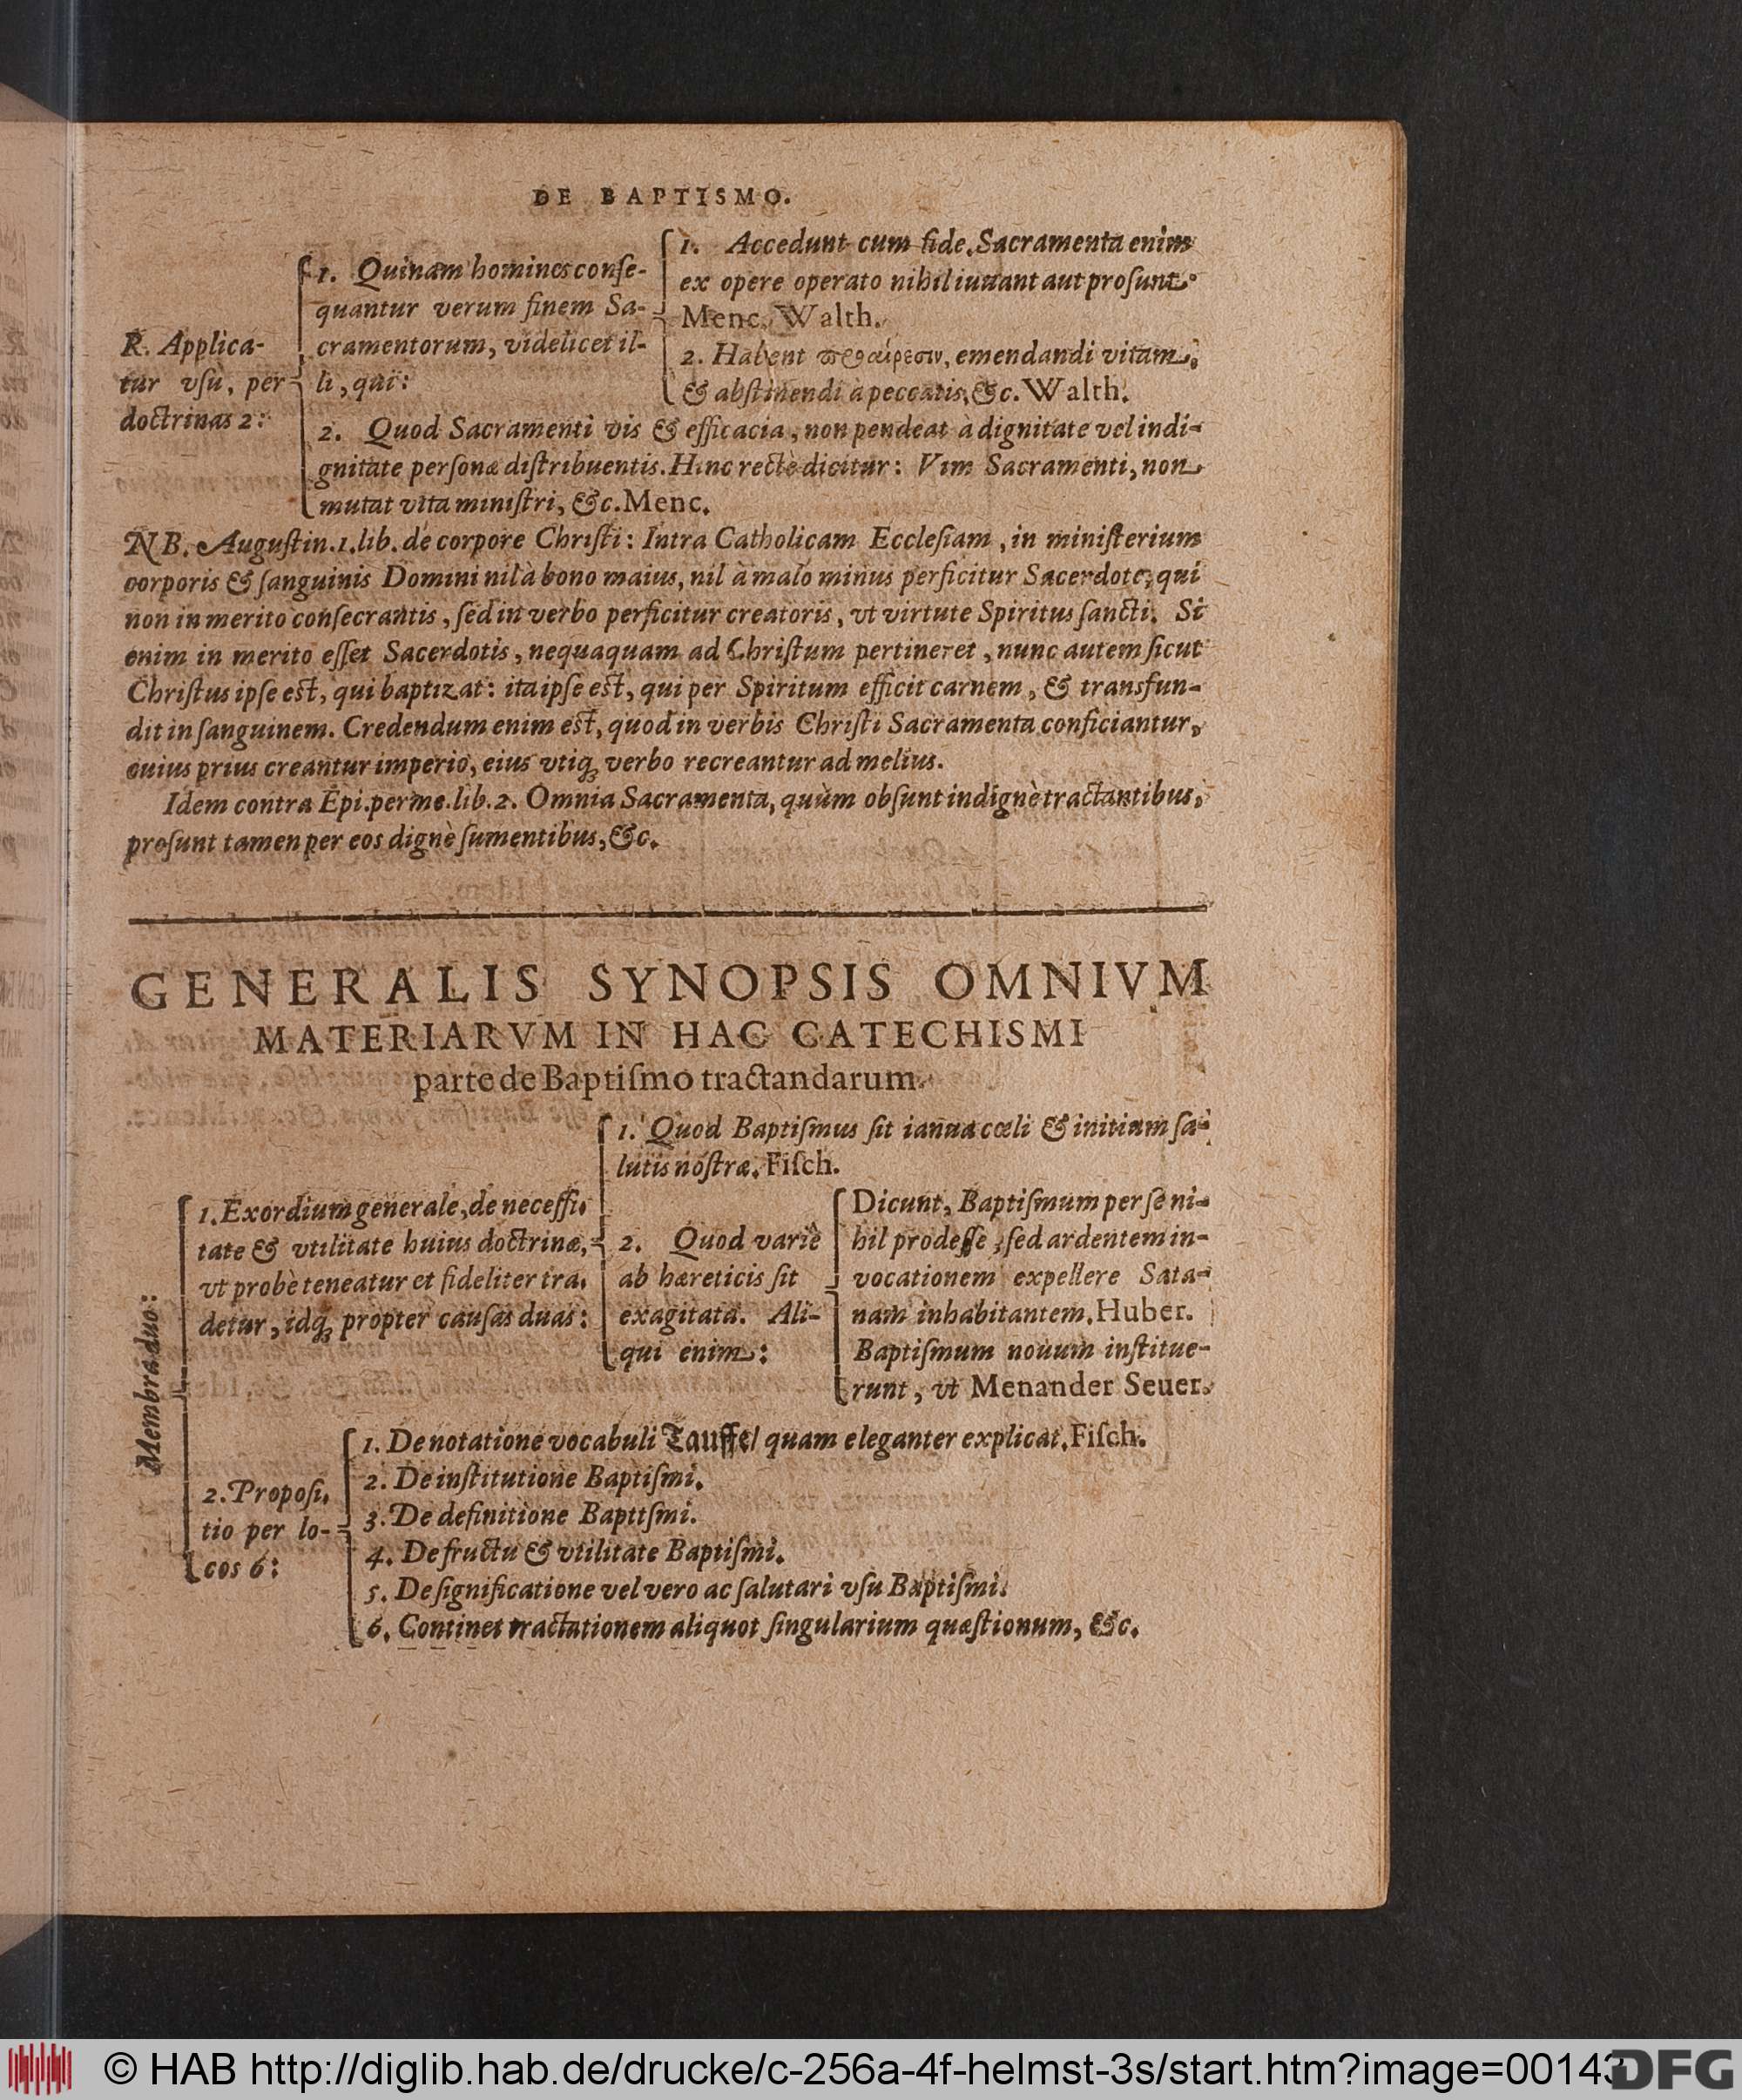 DE BAPTISMO.
R. Applica-
tur vſu, per
doctrinas 2:
1. Quinam homines conſe-
quantur verum finem Sa-
cramentorum, videlicet il-
li, qui:
1. Accedunt cum fide. Sacramenta enim
ex opere operato nihil iuuant aut proſunt.
Menc. Walth.
2. Habent προαίρεσιν, emendandi vitam,
& abſtinendi à peccatis, &c. Walth.
2. Quod Sacramenti vis & efficacia, non pendeat à dignitate vel indi-
gnitate perſonæ diſtribuentis. Hinc rectè dicitur: Vim Sacramenti, non
mutat vita miniſtri, &c. Menc.
NB. Auguſtin. 1. lib. de corpore Chriſti: Intra Catholicam Eccleſiam, in miniſterium
corporis & ſanguinis Domini nil à bono maius, nil à malo minus perficitur Sacerdote, qui
non in merito conſecrantis, ſed in verbo perficitur creatoris, vt virtute Spiritus ſancti. Si
enim in merito eſſet Sacerdotis, nequaquam ad Chriſtum pertineret, nunc autem ſicut
Chriſtus ipſe eſt, qui baptizat: ita ipſe eſt, qui per Spiritum efficit carnem, & transfun-
dit in ſanguinem. Credendum enim eſt, quod in verbis Chriſti Sacramenta conficiantur,
cuius prius creantur imperio, eius vtiq; verbo recreantur ad melius.
Idem contra Epi. perme. lib. 2. Omnia Sacramenta, quùm obſunt indignè tractantibus,
proſunt tamen per eos dignè ſumentibus, &c.
GENERALIS SYNOPSIS OMNIVM
MATERIARVM IN HAC CATECHISMI
parte de Baptiſmo tractandarum.
Membra duo:
1. Exordium generale, de neceſſi.
tate & vtilitate huius doctrinæ,
vt probè teneatur et fideliter tra.
detur, idq; propter cauſas duas:
1. Quod Baptiſmus ſit ianua cœli & initium ſa-
lutis noſtræ. Fiſch.
2. Quod variè
ab hæreticis ſit
exagitata. Ali-
qui enim:
Dicunt, Baptiſmum per ſe ni-
hil prodeſſe, ſed ardentem in-
vocationem expellere Sata-
nam inhabitantem. Huber.
Baptiſmum nouum inſtitue-
runt, vt Menander Seuer.
2. Propoſi.
tio per lo-
cos 6:
1. De notatione vocabuli Tauffe/ quam eleganter explicat. Fiſch.
2. De inſtitutione Baptiſmi.
3. De definitione Baptiſmi.
4. De fructu & vtilitate Baptiſmi.
5. De ſignificatione vel vero ac ſalutari vſu Baptiſmi.
6. Continet tractationem aliquot ſingularium quæſtionum, &c.
© HAB http://diglib.hab.de/drucke/c-256a-4f-helmst-3s/start.htm?image=00143
DFG